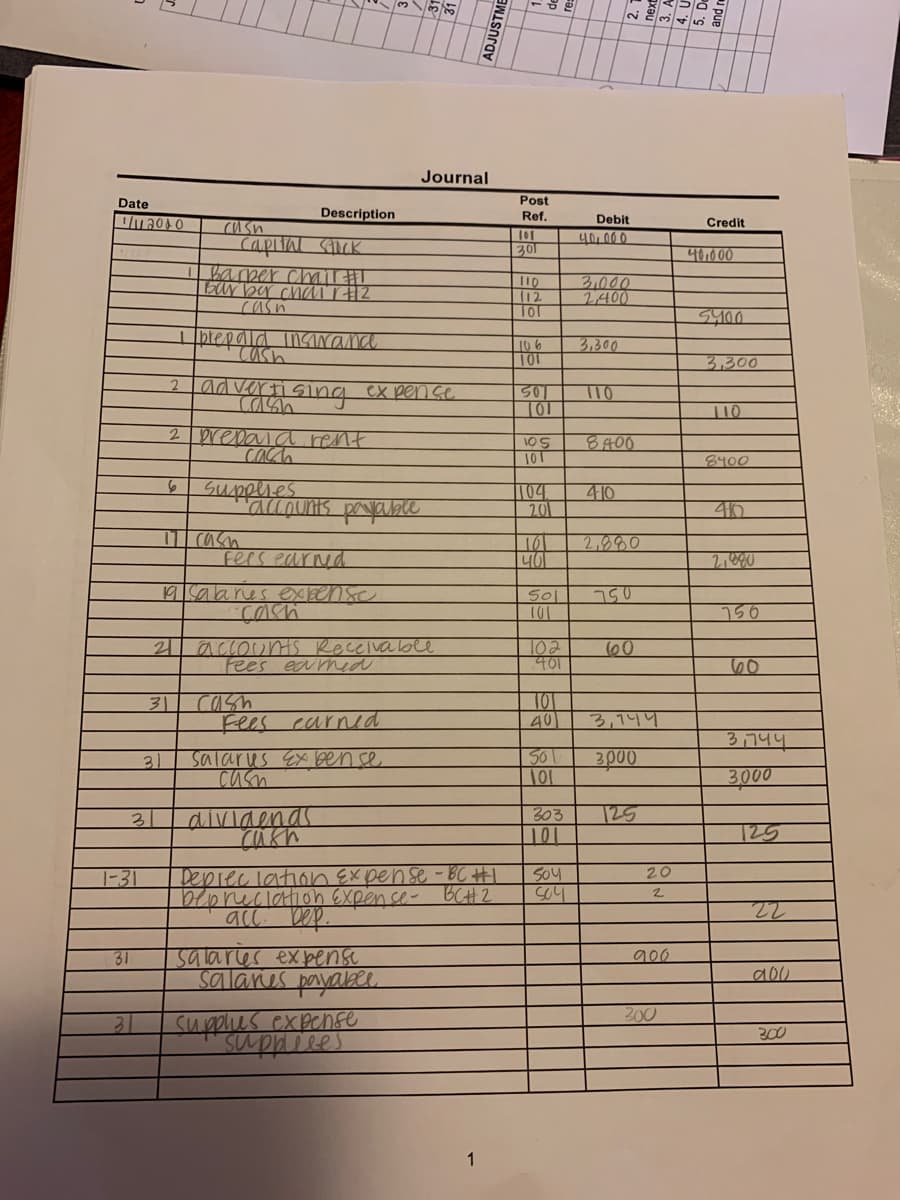 3
31
31
ADJUSTME
1.
de
res
2. T
next
3. A
4. U
5. De
and r
Journal
Date Description Post Ref. Debit Credit
cash 101 40,000
Capital Stock 301 40,000
1 Barber Chair #1 110 3,000
Barber chair #2 112 2,400
cash 101 5,400
1 prepaid insurance 106 3,300
cash 101 3,300
2 advertising expense 507 110
cash 101 110
2 prepaid rent 105 8400
cash 101 8400
6 supplies 104 410
accounts payable 201 410
17 cash 101 2,880
Fees earned 401 2,880
19 Salaries expense 501 750
cash 101 750
21 accounts Receivable 102 60
Fees earned 401 60
31 cash 101
Fees earned 401 3,744
3,744
31 Salaries Expense 501 3,000
cash 101 3,000
31 dividends 303 125
cash 101 125
1-31 Depreciation Expense - BC #1 504 20
Depreciation Expense - BC#2 504 2
acc. Dep. 22
31 salaries expense 900
salaries payable 900
31 supplies expense 300
supplies 300
1